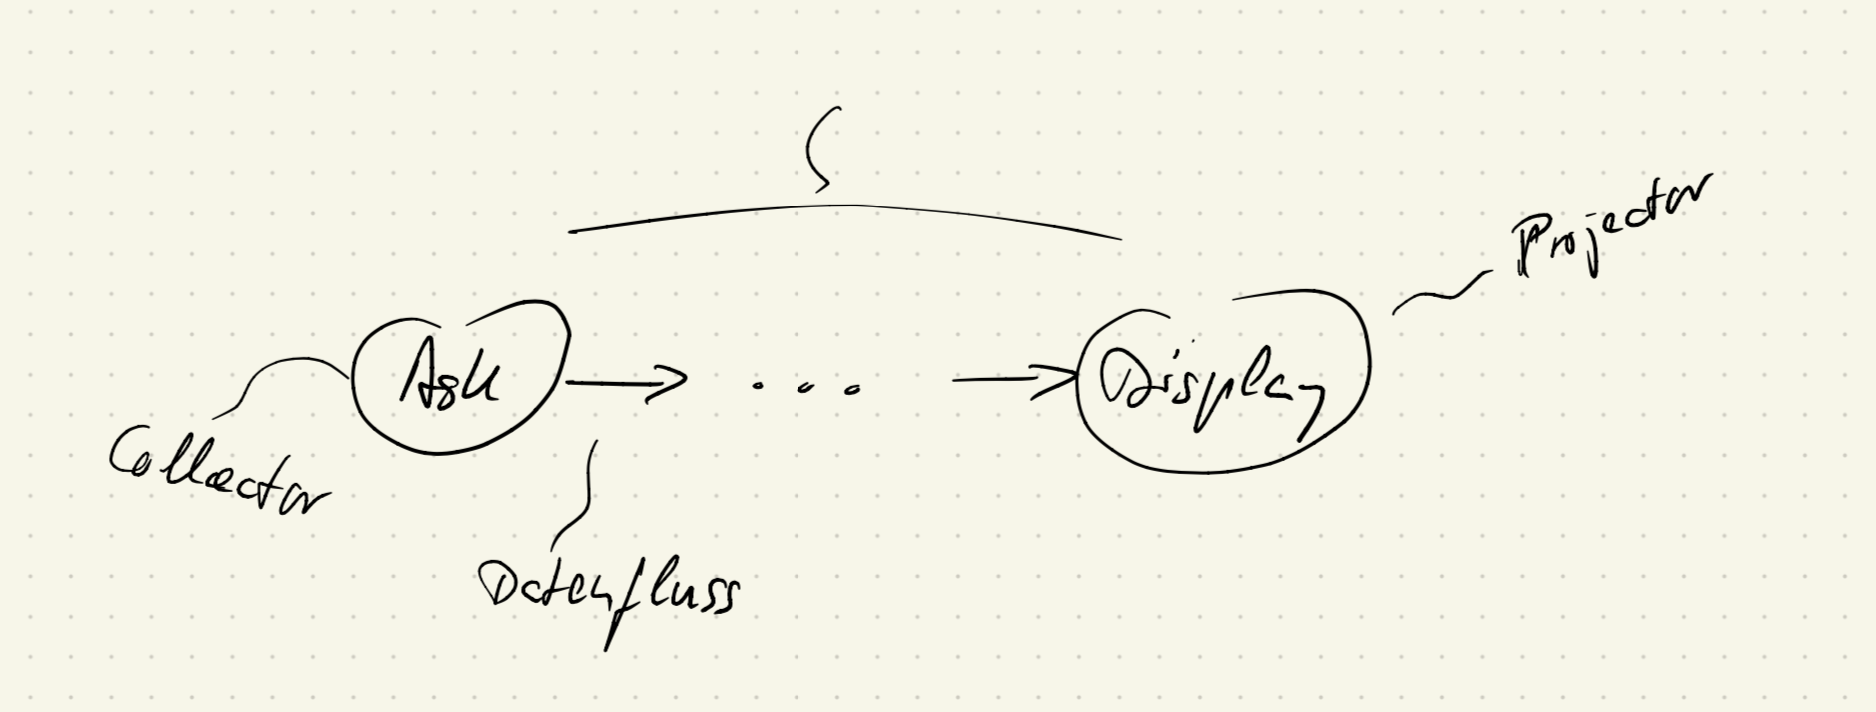 Projector
Ask
...
Display
Collector
Datenfluss